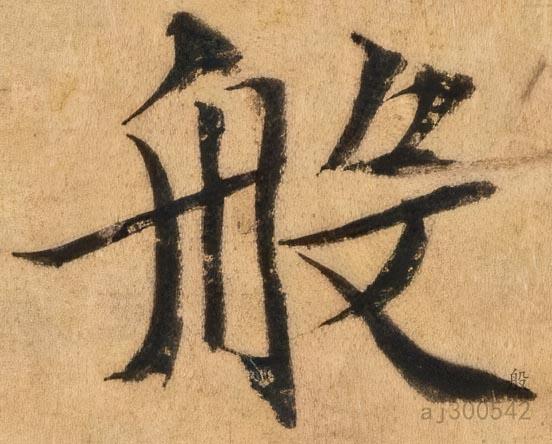 般
般
aj300542